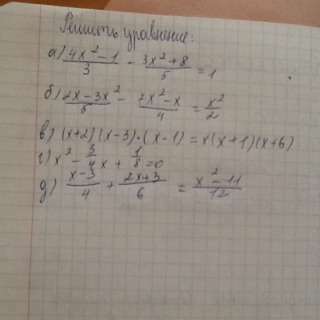 Решить уравнение:
а) (4x² - 1)/3 - (3x² + 8)/5 = 1
б) (2x - 3x²)/5 - (7x² - x)/4 = x²/2
в) (x+2)(x-3)·(x-1) = x(x+1)(x+6)
г) x² - 3/4 x + 1/8 = 0
д) (x-3)/4 + (2x+3)/6 = (x² - 11)/12